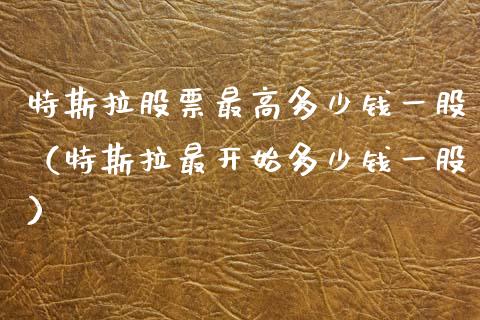 特斯拉股票最高多少钱一股
（特斯拉最开始多少钱一股
）